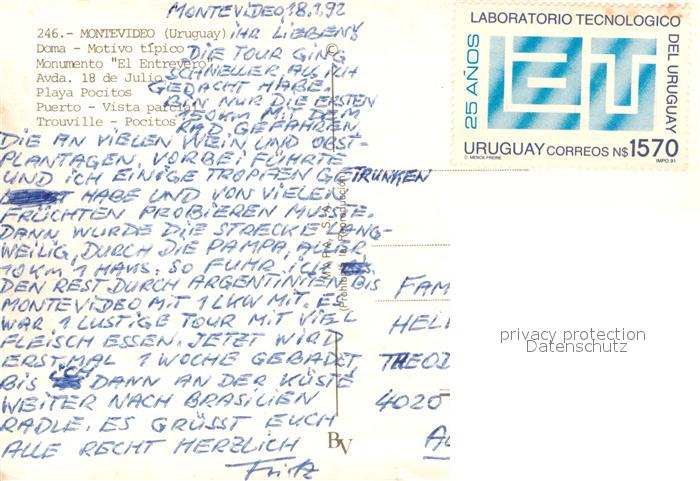 MONTEVIDEO 18.1.92
IHR LIEBEN!
DIE TOUR GING
SCHNELLER ALS ICH
GEDACHT HABE.
BIN NUR DIE ERSTEN
150KM MIT DEM
RAD GEFAHREN,
DIE AN VIELEN WEIN UND OBST-
PLANTAGEN VORBEI FÜHRTE
UND ICH EINIGE TROPFEN GETRUNKEN
HABE UND VON VIELEN
FRÜCHTEN PROBIEREN MUSSTE.
DANN WURDE DIE STRECKE LANG-
WEILIG, DURCH DIE PAMPA, ALLER
10KM 1 HAUS. SO FUHR ICH
DEN REST DURCH ARGENTINIEN BIS
MONTEVIDEO MIT 1 LKW MIT. ES
WAR 1 LUSTIGE TOUR MIT VIEL
FLEISCH ESSEN. JETZT WIRD
ERST MAL 1 WOCHE GEBADET
BIS ICH DANN AN DER KÜSTE
WEITER NACH BRASILIEN
RADLE. ES GRÜSST EUCH
ALLE RECHT HERZLICH
Fritz
246.- MONTEVIDEO (Uruguay)
Doma - Motivo típico
Monumento "El Entrevero"
Avda. 18 de Julio
Playa Pocitos
Puerto - Vista parcial
Trouville - Pocitos
©
(Prohibida la Reproducción)
BV
FAM
HEL
THEOD
4020
LABORATORIO TECNOLOGICO
DEL URUGUAY
25 AÑOS
URUGUAY CORREOS N$ 1570
C. MENCK FREIRE
IMPO 91
privacy protection
Datenschutz